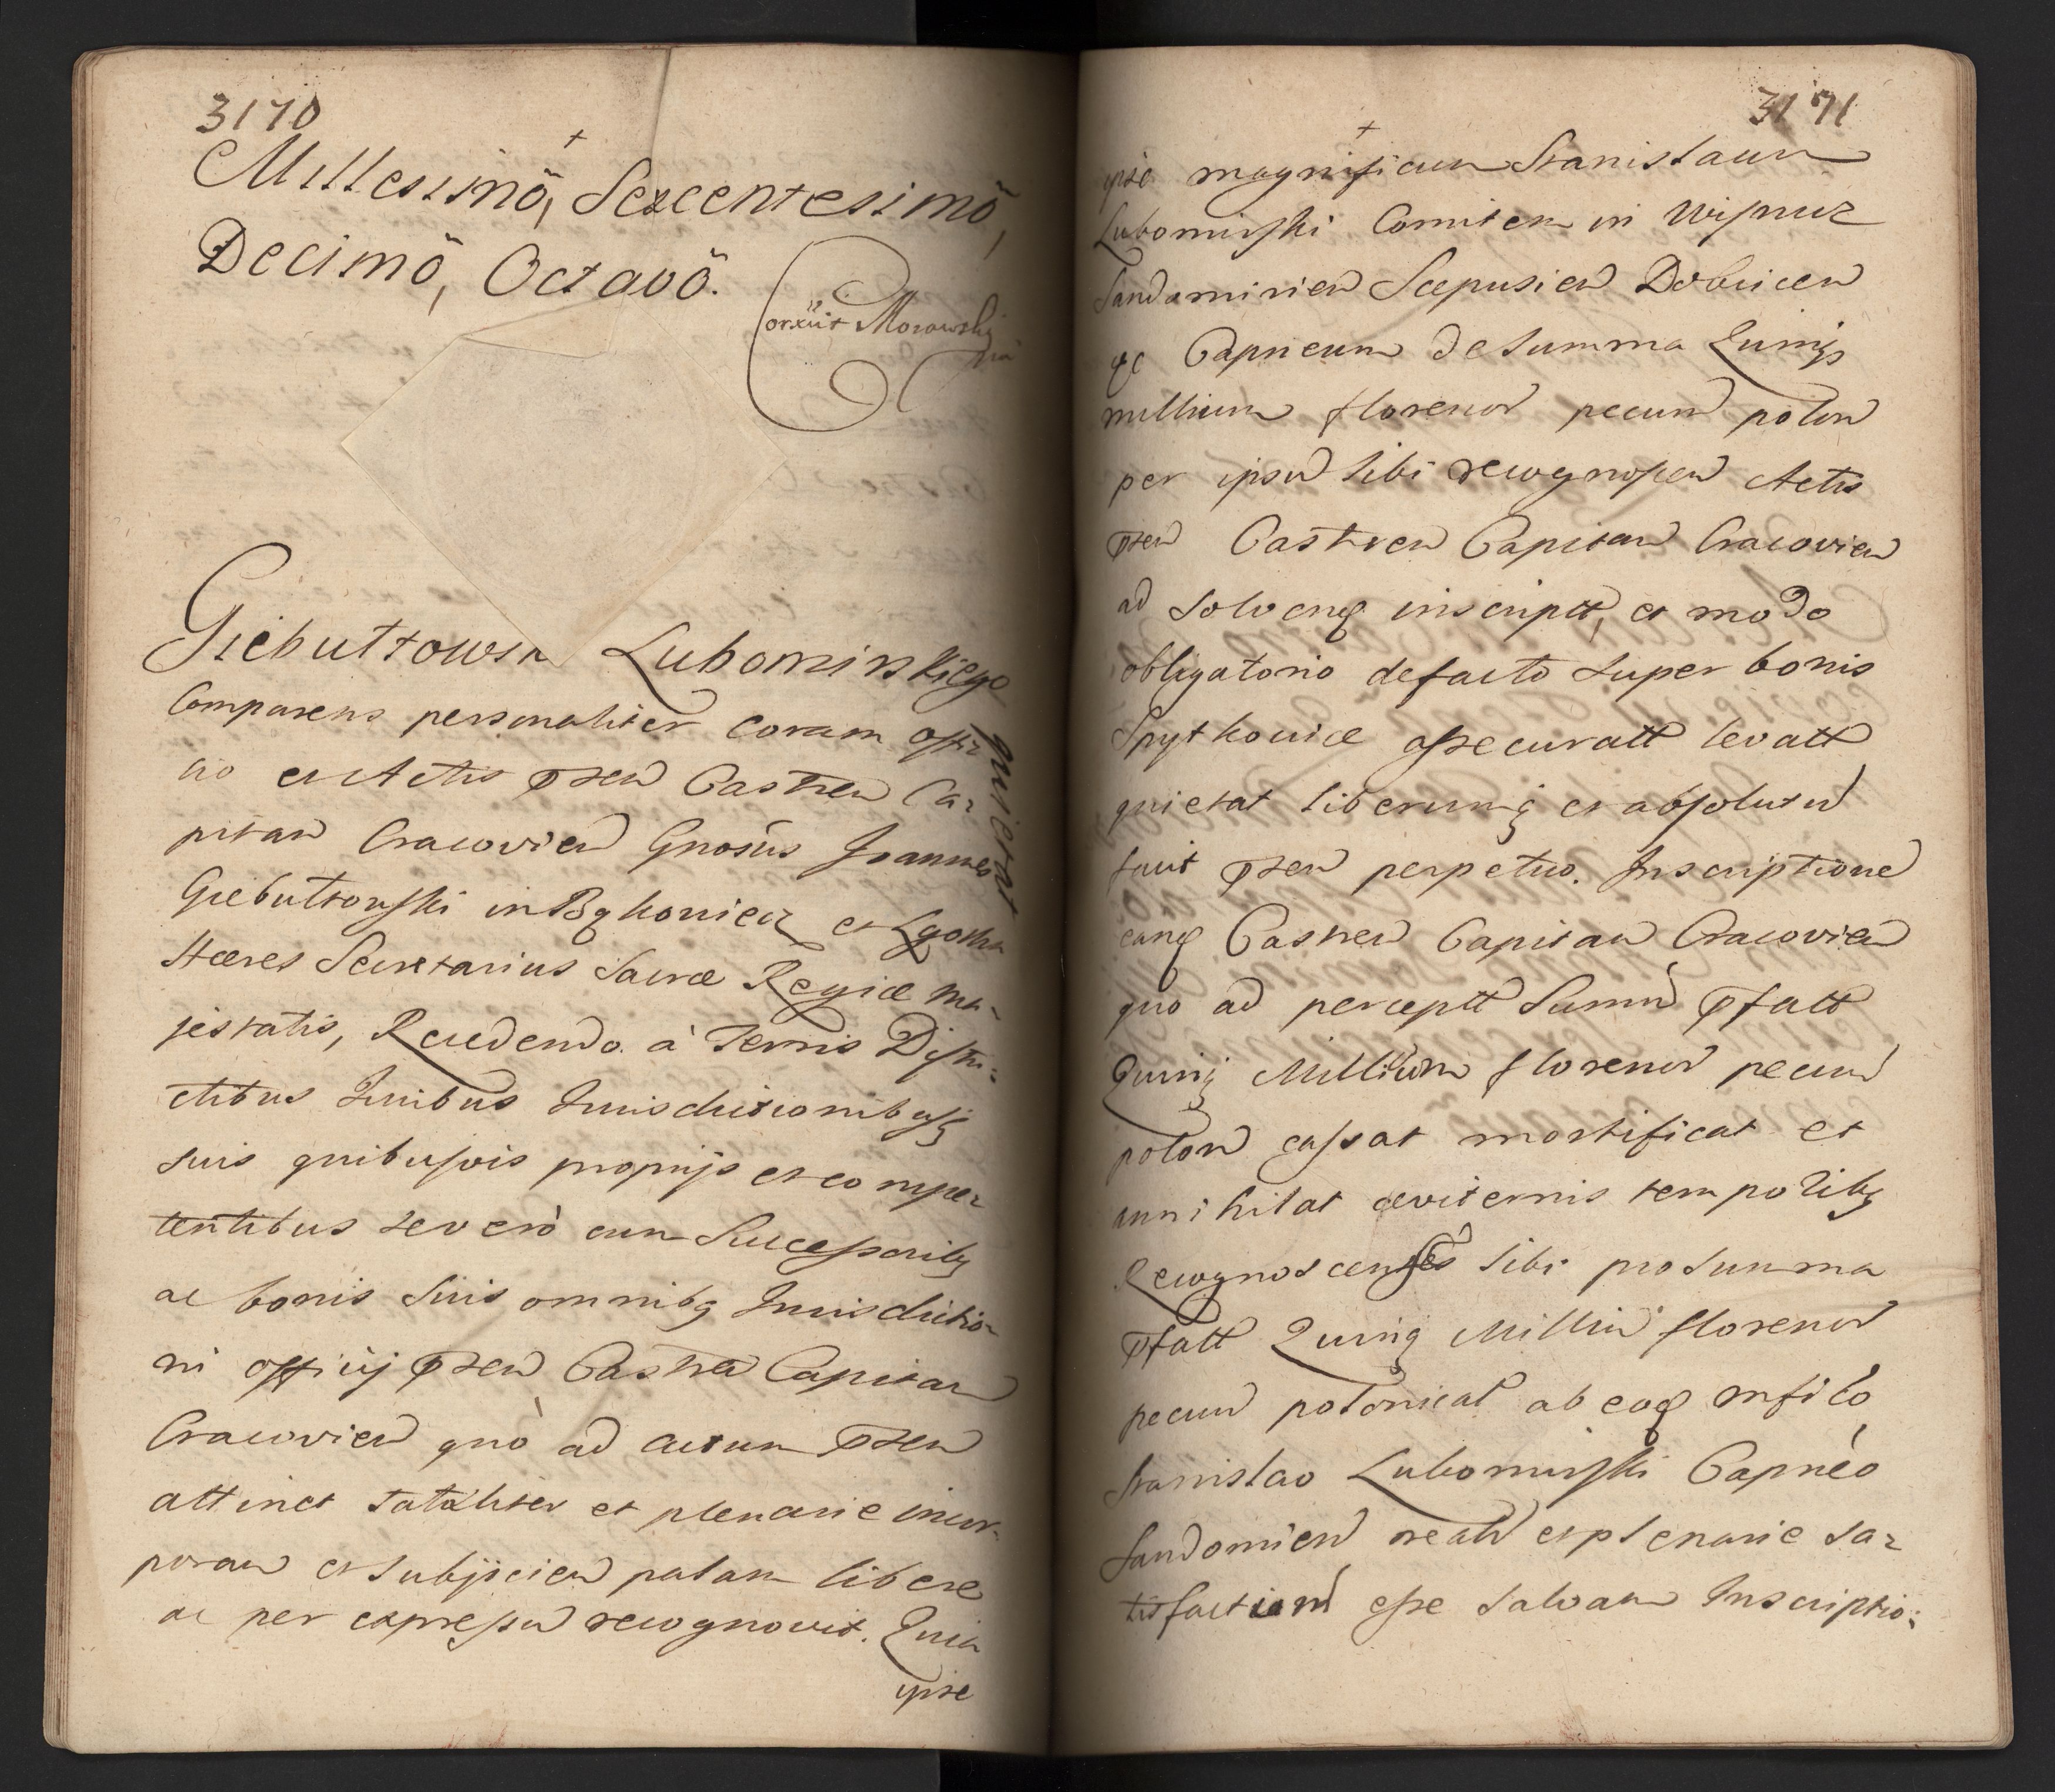 3170
Millesimô, Sexcentesimô,
Decimô, Octavô.
Corxüt Morawski
Giebułtowsk Lubomirskiego
quietat
Comparens personaliter coram Offi-
cio et Actis pñten Castren Ca-
pitan Cracovien Gnosus Joannes
Giebułtowski in et
Hæres Secretarius Sacræ Regiæ Ma-
jestatis, Recedendo à Terris Distri-
ctibus Juribus Jurisdictionibusq
suis quibusvis proprijs et compe-
tentibus se verò cum Successoribq
ac bonis suis omnibq Jurisdictio-
ni officij pñten Castren Capitan
Cracovien quò ad actum pñten
attinet totaliter et plenarie incor-
poran et subjicien palam libere
ac per expressu recognovit. Quia
ipse
3171
ipse magnificum Stanislaum
Lubomirski Comitem in Wisnicz
Sandomirien Scepusien Dobcicen
qe Capneum de summa Quinqs
millium florenor pecun polon
per ipsu sibi recognoscen Actis
pñten Castren Capitan Cracovien
ad solveng inscriptt, et modo
obligatorio defacto super bonis
Spytkovice assecuratt levatt
quietat liberumq et absolutu
facit pñten perpetuo. Inscriptione
eang Castren Capitan Cracovien
quo ad perceptt Summ pfatt
Quinq Millium florenor pecun
polon cassat mortificat et
annihilat æviternis temporibq
Recognoscens sibi pro summa
pfatt Quinq Milliu florenor
pecun polonical ab eog mfico
Stanislao Lubomirski Capneo
Sandomien realr et plenarie sa-
tisfaction esse salvam Inscriptio-